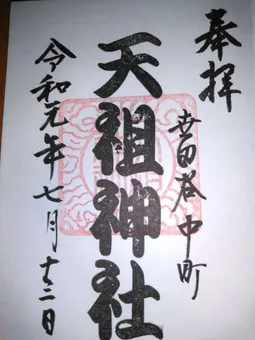 奉拝
世田谷中町
天祖神社
令和元年七月十三日